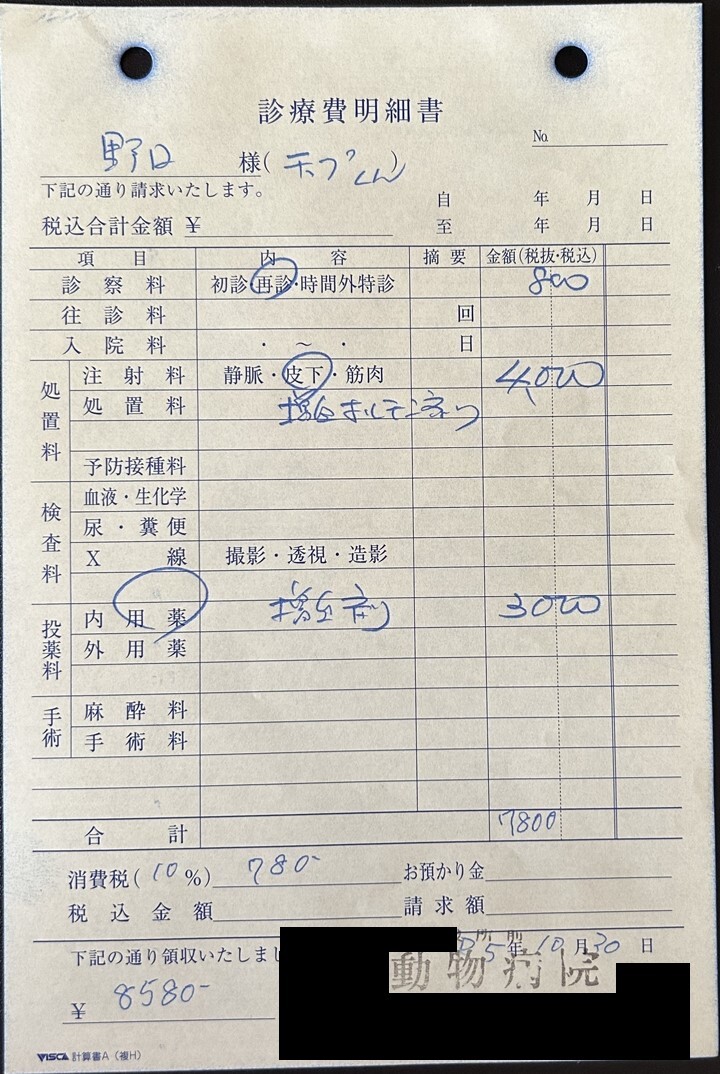 診療費明細書
No.
野口 様(天プくん)
下記の通り請求いたします。
自 年 月 日
税込合計金額 ¥
至 年 月 日
項目 内容 摘要 金額(税抜・税込)
診察料 初診・再診・時間外特診 800
往診料 回
入院料 ・ ~ ・ 日
処置料
注射料 静脈・皮下・筋肉 4,000
処置料
予防接種料
検査料
血液・生化学
尿・糞便
X線 撮影・透視・造影
投薬料
内用薬 3000
外用薬
手術
麻酔料
手術料
合計 7800
消費税(10%) 780-
お預かり金
税込金額
請求額
下記の通り領収いたしまし
5年10月30日
動物病院
¥ 8580-
VISCA 計算書A(複H)